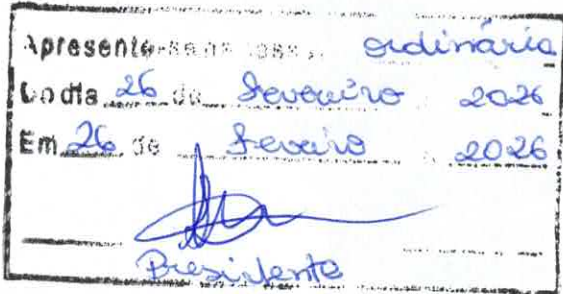 Apresente-se na sessão ordinária
Do dia 26 de Fevereiro 2026
Em 26 de Fevereiro 2026
Presidente